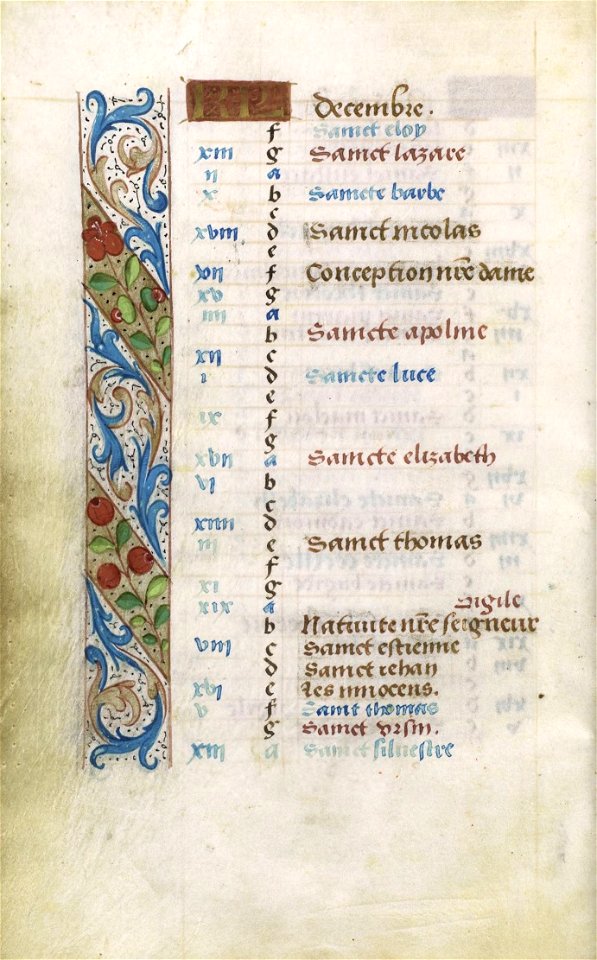 KL decembre.
f Sainct eloy
xiii g Sainct lazare
ii a
x b Saincte barbe
c
xviii d Sainct nicolas
e
vii f Conception nr̄e dame
xv g
iiii a
b Saincte apoline
xii c
i d Saincte luce
e
ix f
g
xvii a Saincte elizabeth
vi b
c
xiiii d
iii e Sainct thomas
f
xi g
xix a Vigile
b Nativite nr̄e seigneur
viii c Sainct estienne
d Sainct iehan
xvi e Les innocens.
v f Sainct thomas
g Sainct vrsin.
xiii a Sainct silvestre